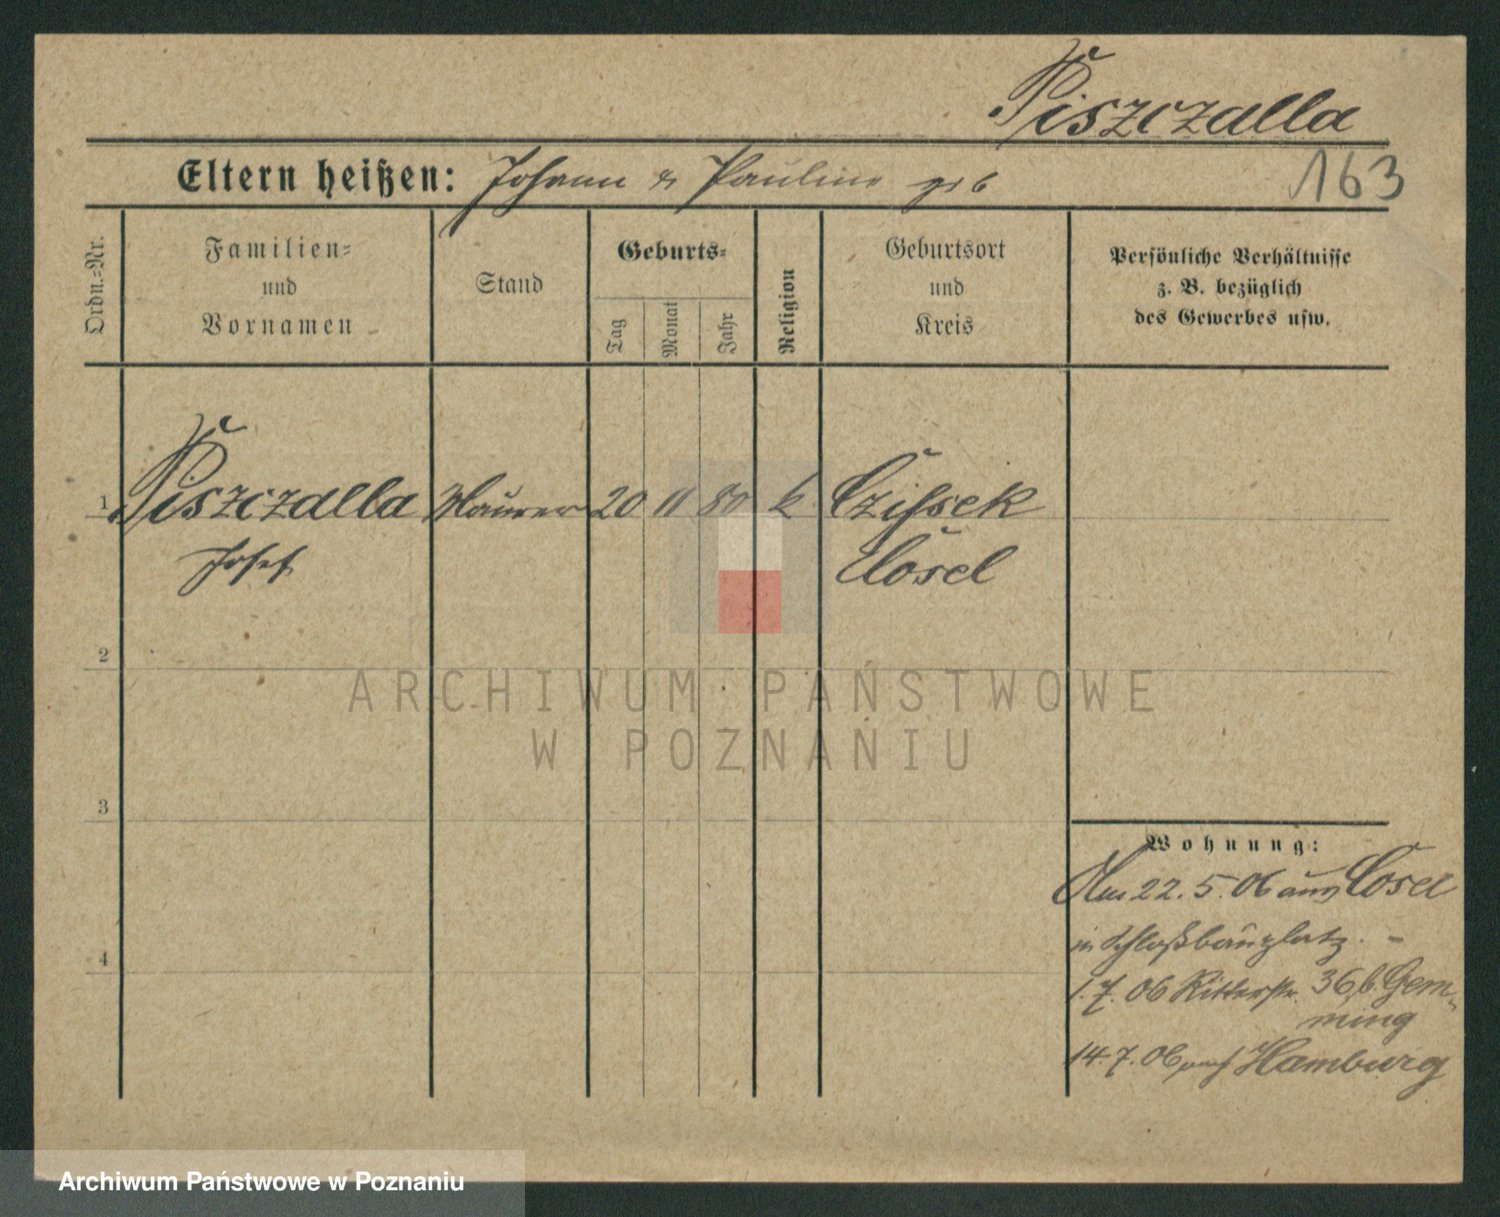 Piszczalla
Eltern heißen: Johann & Pauline geb
163
Ordn.-Nr.
Familien-
und
Vornamen
Stand
Geburts-
Tag
Monat
Jahr
Religion
Geburtsort
und
Kreis
Persönliche Verhältnisse
z. B. bezüglich
des Gewerbes usw.
1 Piszczalla Maurer 20 11 80 k Czissek
Josef Cosel
2
3
4
Wohnung:
Am 22. 5. 06 aus Cosel
in Schloßbauplatz. –
1. 7. 06 Ritterstr. 36, b. Gem-
ming
14. 7. 06 nach Hamburg
ARCHIWUM PAŃSTWOWE
W POZNANIU
Archiwum Państwowe w Poznaniu